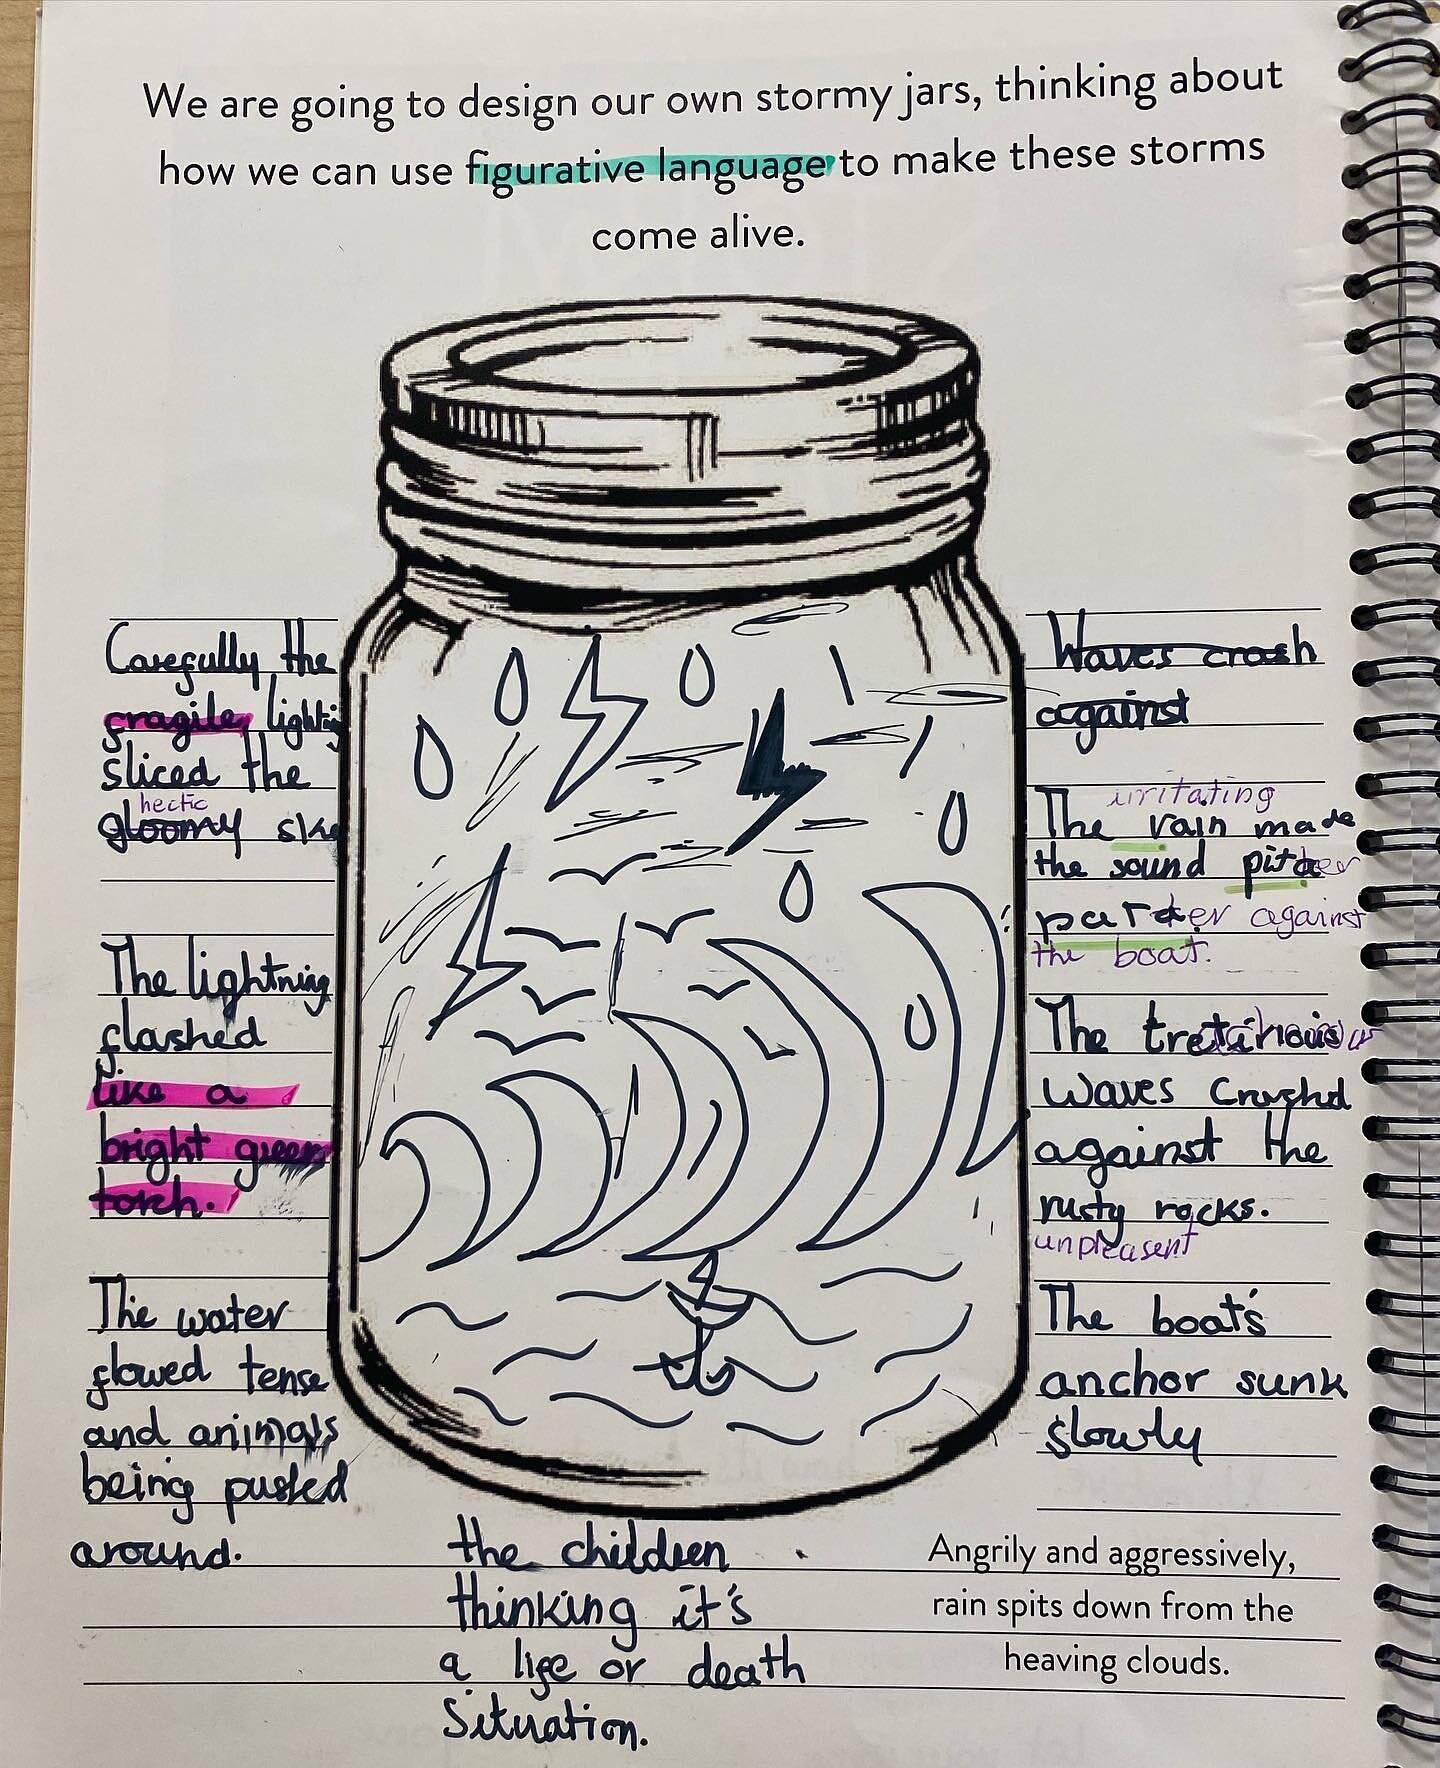 We are going to design our own stormy jars, thinking about
how we can use figurative language to make these storms
come alive.
Carefully the
fragile, lightnig
sliced the
hectic
gloomy sky
The lightning
flashed
like a
bright green
torch.
The water
flowed tense
and animals
being pushed
around.
the children
thinking it's
a life or death
situation.
Waves crash
against
irritating
The rain made
the sound pitter
patter against
the boat.
The
waves Crashed
against the
rusty rocks.
unpleasent
The boat's
anchor sunk
slowly
Angrily and aggressively,
rain spits down from the
heaving clouds.